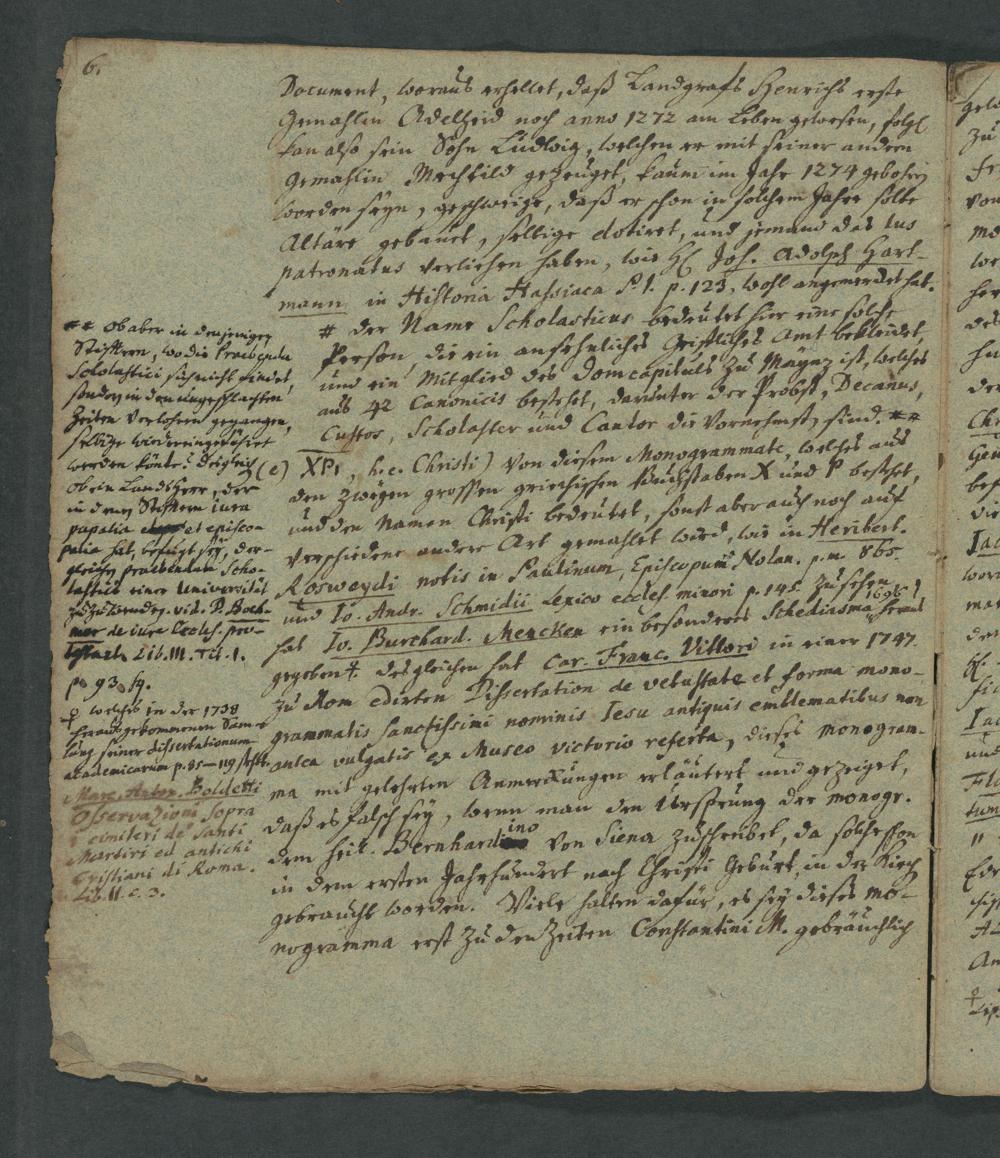 6.
Document, woraus erhellet, daß Landgrafs Henrichs erste
Gemahlin Adelheid noch anno 1272 am Leben gewesen, folgl
kan also sein Sohn Ludwig, welchen er mit seiner andern
Gemahlin Mechtild gezeuget, kaum im Jahr 1274 gebohren
worden seyn, geschweige, daß er schon in solchem Jahre solte
Altäre gebauet, selbige dotiret, und jemand das Ius
patronatus verliehen haben, wie H. Joh. Adolph Hart-
mann in Historia Hassiaca P. 1. p. 123. wohl angemercket hat.
# Der Name Scholasticus bedeutet hier eine solche
Person, die ein ansehnliches Geistliches Amt bekleidet,
und ein Mitglied des Domcapituls zu Maynz ist, welches
aus 42 Canonicis bestehet, darunter der Probst, Decanus,
Custos, Scholaster und Cantor die Vornehmsten sind. ##
(e) XPi, h. e. Christi) Von diesem Monogrammate, welches aus
den zweyen grossen griechischen Buchstaben X und P bestehet,
und den Namen Christi bedeutet, sonst aber auch noch auf
verschiedene andere Art gemahlet wird, wie in Heribert.
Rosweydi notis in Paulinum, Episcopum Nolan. p. m. 865
und Io. Andr. Schmidii Lexico eccles. minori p. 145. zu sehen,
hat Io. Burchard. Mencken ein besonderes Schediasma 1696 heraus
gegeben ♀. desgleichen hat Car. Franc. Vittori in einer 1747.
zu Rom edirten Dissertation de vetustate et forma mono-
grammatis sanctissimi nominis Iesu antiquis emblematibus non
antea vulgatis ex Museo victorio referta, dieses monogram-
ma mit gelehrten Anmerckungen erläutert und gezeiget,
daß es falsch sey, wenn man den Ursprung der monogr.
dem heil. Bernhardino von Siena zuschreibet, da solches schon
in dem ersten Jahrhundert nach Christi Geburt, in der Kirch
gebraucht worden. Viele halten dafür, es sey dieses mo-
nogramma erst zu den Zeiten Constantini M. gebräuchlich
## Ob aber in denjenigen
Stifftern, wo die Praebenda
Scholastici sich nicht findet,
sondern in den ungeschlachten
Zeiten verlohren gegangen,
selbige wieder eingeführet
werden könte? desgleich
ob ein Landsherr, der
in denen Stifftern iura
papalia et episco-
palia hat, befugt sey, der-
gleichen praebendam Scho-
lasticis einer Universität
zuzuwenden. vid. P. Boeh-
mer de iure Eccles. pro-
testant. Lib. III. Tit. 1.
p. 93. sq.
♀ welches in der 1738
herausgekommenen Sam-
lung seiner dissertationum
academicarum p. 85–119 steht.
Marc. Anton. Boldetti
Osservazioni sopra
i cimiteri de' Santi
Martiri ed antichi
Cristiani di Roma.
Lib. II. c. 3.